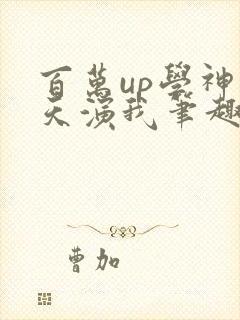 百萬up學神
天演我筆趣
曹加